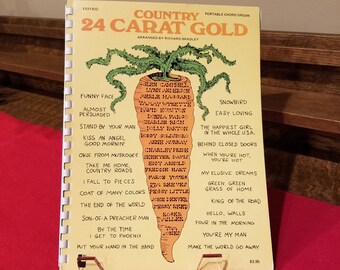 PORTABLE CHORD ORGAN
COUNTRY
24 CARAT GOLD
ARRANGED BY RICHARD BRADLEY
GLEN CAMPBELL
LYNN ANDERSON
MERLE HAGGARD
TAMMY WYNETTE
DONNA FARGO
CHARLIE RICH
DOLLY PARTON
ANNE MURRAY
EDDY ARNOLD
FREDDIE HART
ROGER MILLER
FUNNY FACE
ALMOST
PERSUADED
STAND BY YOUR MAN
KISS AN ANGEL
GOOD MORNIN'
OKIE FROM MUSKOGEE
TAKE ME HOME,
COUNTRY ROADS
I FALL TO PIECES
COAT OF MANY COLORS
THE END OF THE WORLD
SON-OF-A PREACHER MAN
BY THE TIME
I GET TO PHOENIX
PUT YOUR HAND IN THE HAND
SNOWBIRD
EASY LOVING
THE HAPPIEST GIRL
IN THE WHOLE U.S.A.
BEHIND CLOSED DOORS
WHEN YOU'RE HOT,
YOU'RE HOT
MY ELUSIVE DREAMS
GREEN GREEN
GRASS OF HOME
KING OF THE ROAD
HELLO, WALLS
FOUR IN THE MORNING
YOU'RE MY MAN
MAKE THE WORLD GO AWAY